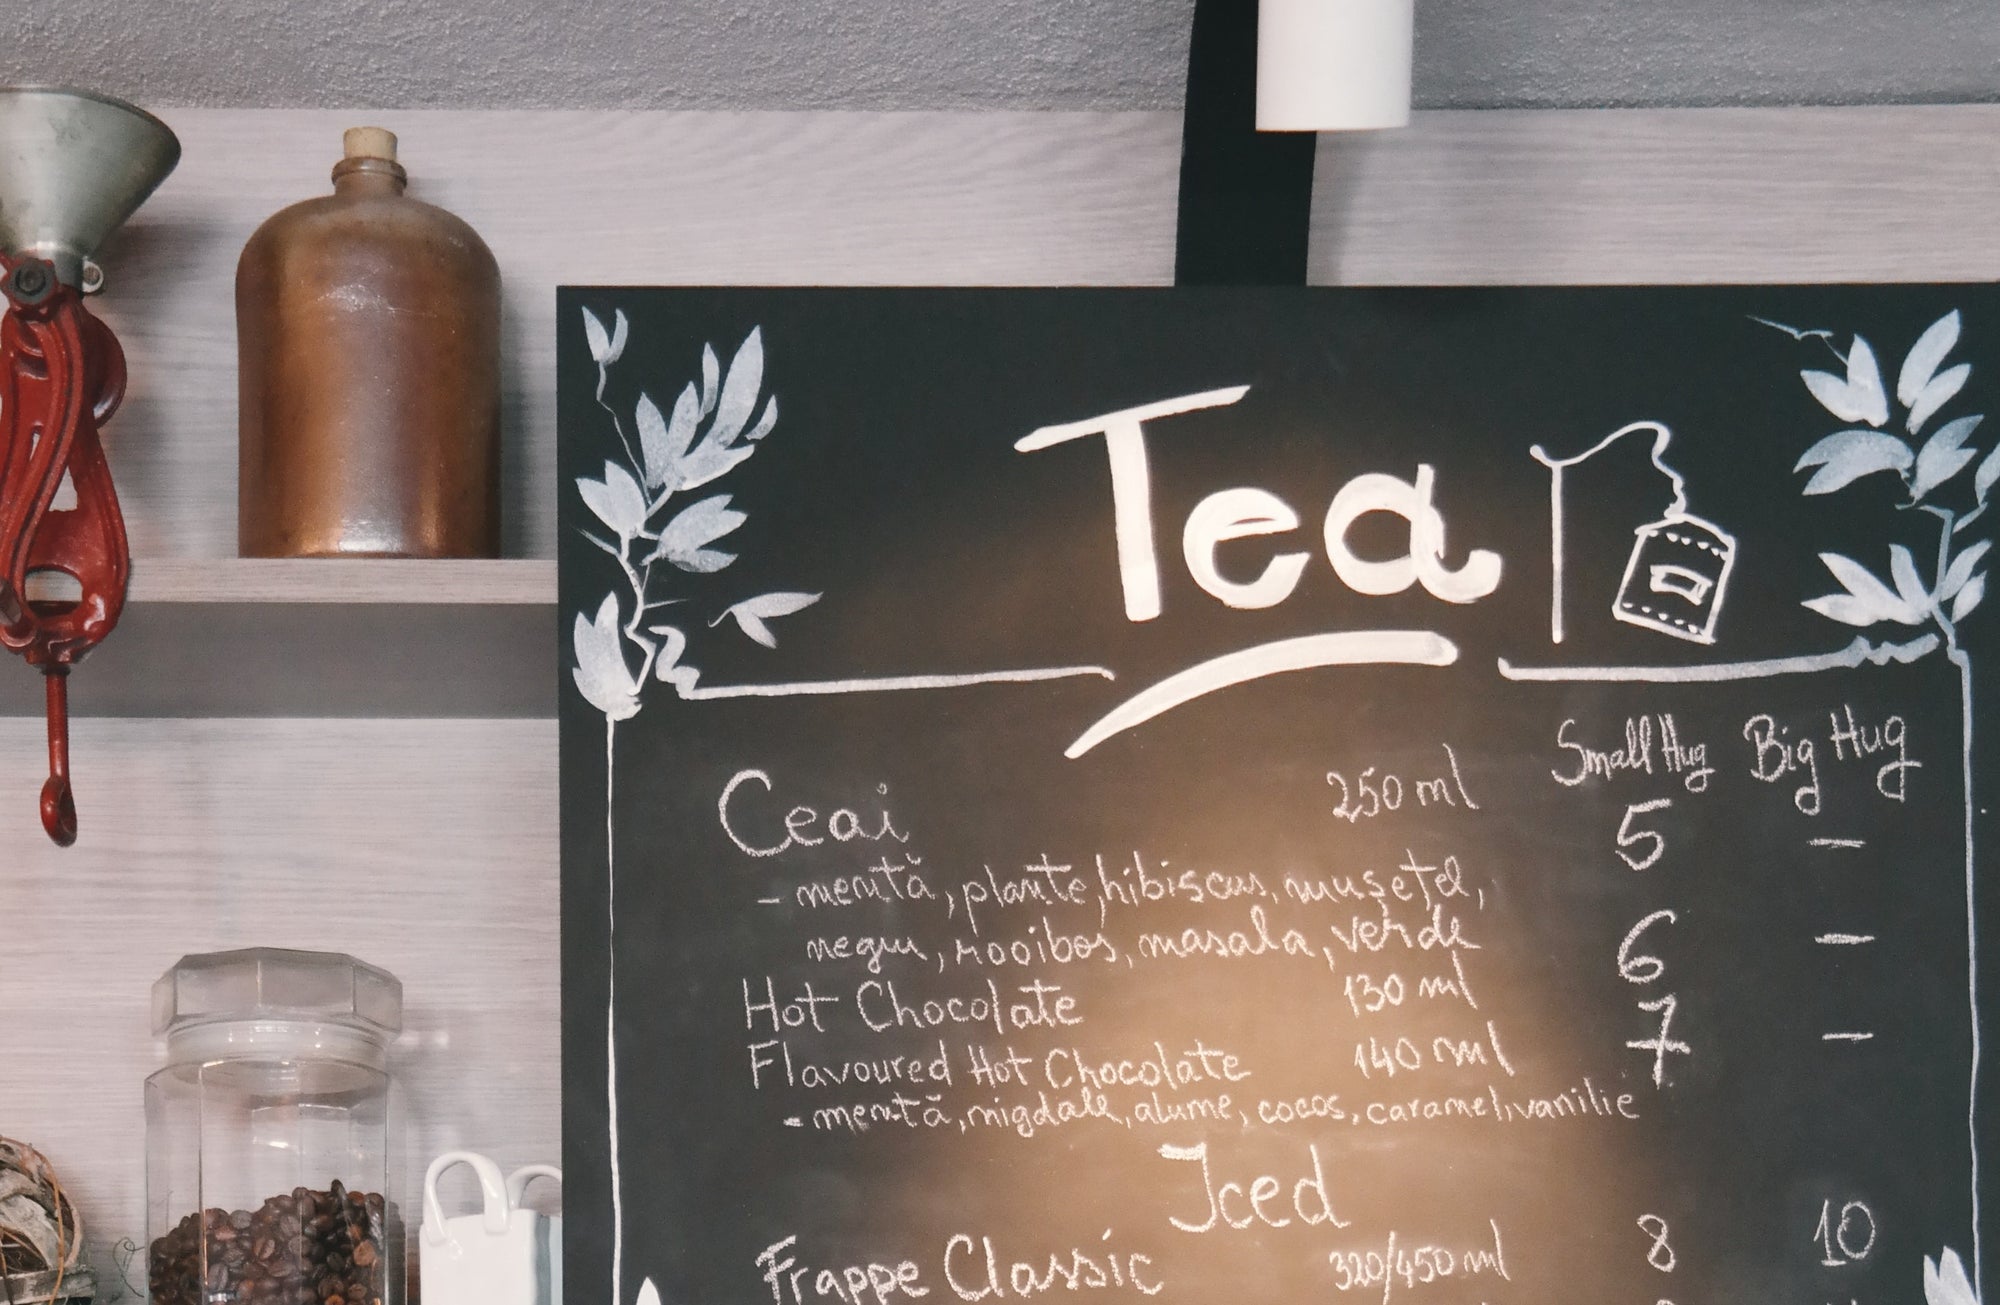 Tea
Small Hug Big Hug
Ceai 250 ml 5 –
- mentă, plante, hibiscus, mușețel,
negru, rooibos, masala, verde
Hot Chocolate 130 ml 6 –
Flavoured Hot Chocolate 140 ml 7 –
- mentă, migdale, alune, cocos, caramel, vanilie
Iced
Frappe Classic 320/450 ml 8 10